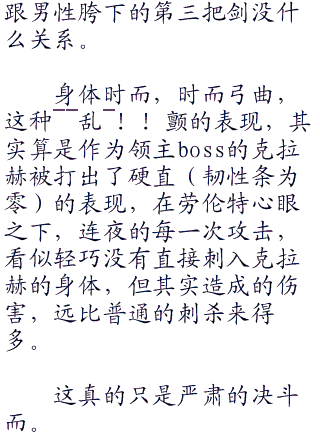 跟男性胯下的第三把剑没什
么关系。
身体时而，时而弓曲，
这种¯¯乱¯！！颤的表现，其
实算是作为领主boss的克拉
赫被打出了硬直（韧性条为
零）的表现，在劳伦特心眼
之下，连夜的每一次攻击，
看似轻巧没有直接刺入克拉
赫的身体，但其实造成的伤
害，远比普通的刺杀来得
多。
这真的只是严肃的决斗
而。